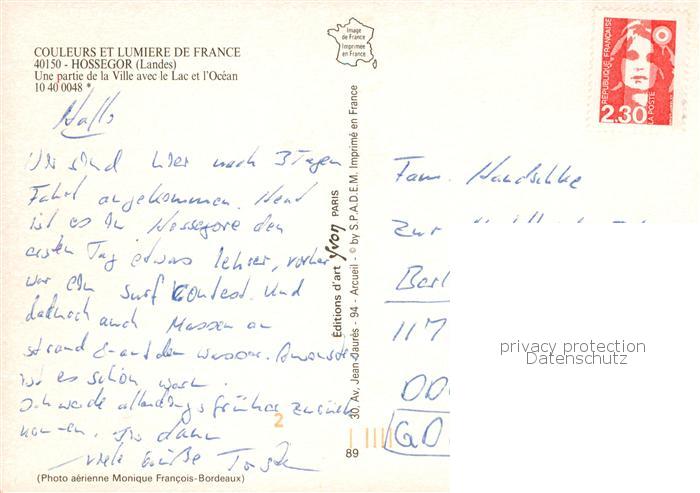 COULEURS ET LUMIERE DE FRANCE
40150 - HOSSEGOR (Landes)
Une partie de la Ville avec le Lac et l'Océan
10 40 0048 *
Image de France
Imprimée en France
REPUBLIQUE FRANÇAISE
2.30
LA POSTE
Hallo
Wir sind hier nach 3 Tagen
Fahrt angekommen. Heut
ist es in Hossegore den
ersten Tag etwas leerer, vorher
war ein Surf Contest. Und
dadurch auch Massen am
Strand & auf dem Wasser. Ansonsten
ist es schön warm.
Ich werde allerdings früher zurück
kommen. Bis dann
viele Grüße
Editions d'art Yvon PARIS
30, Av. Jean-Jaurès - 94 - Arcueil - © by S.P.A.D.E.M. Imprimé en France
Fam. Handschke
Zur
Berl
117
DD
GD
privacy protection
Datenschutz
2
89
(Photo aérienne Monique François-Bordeaux)